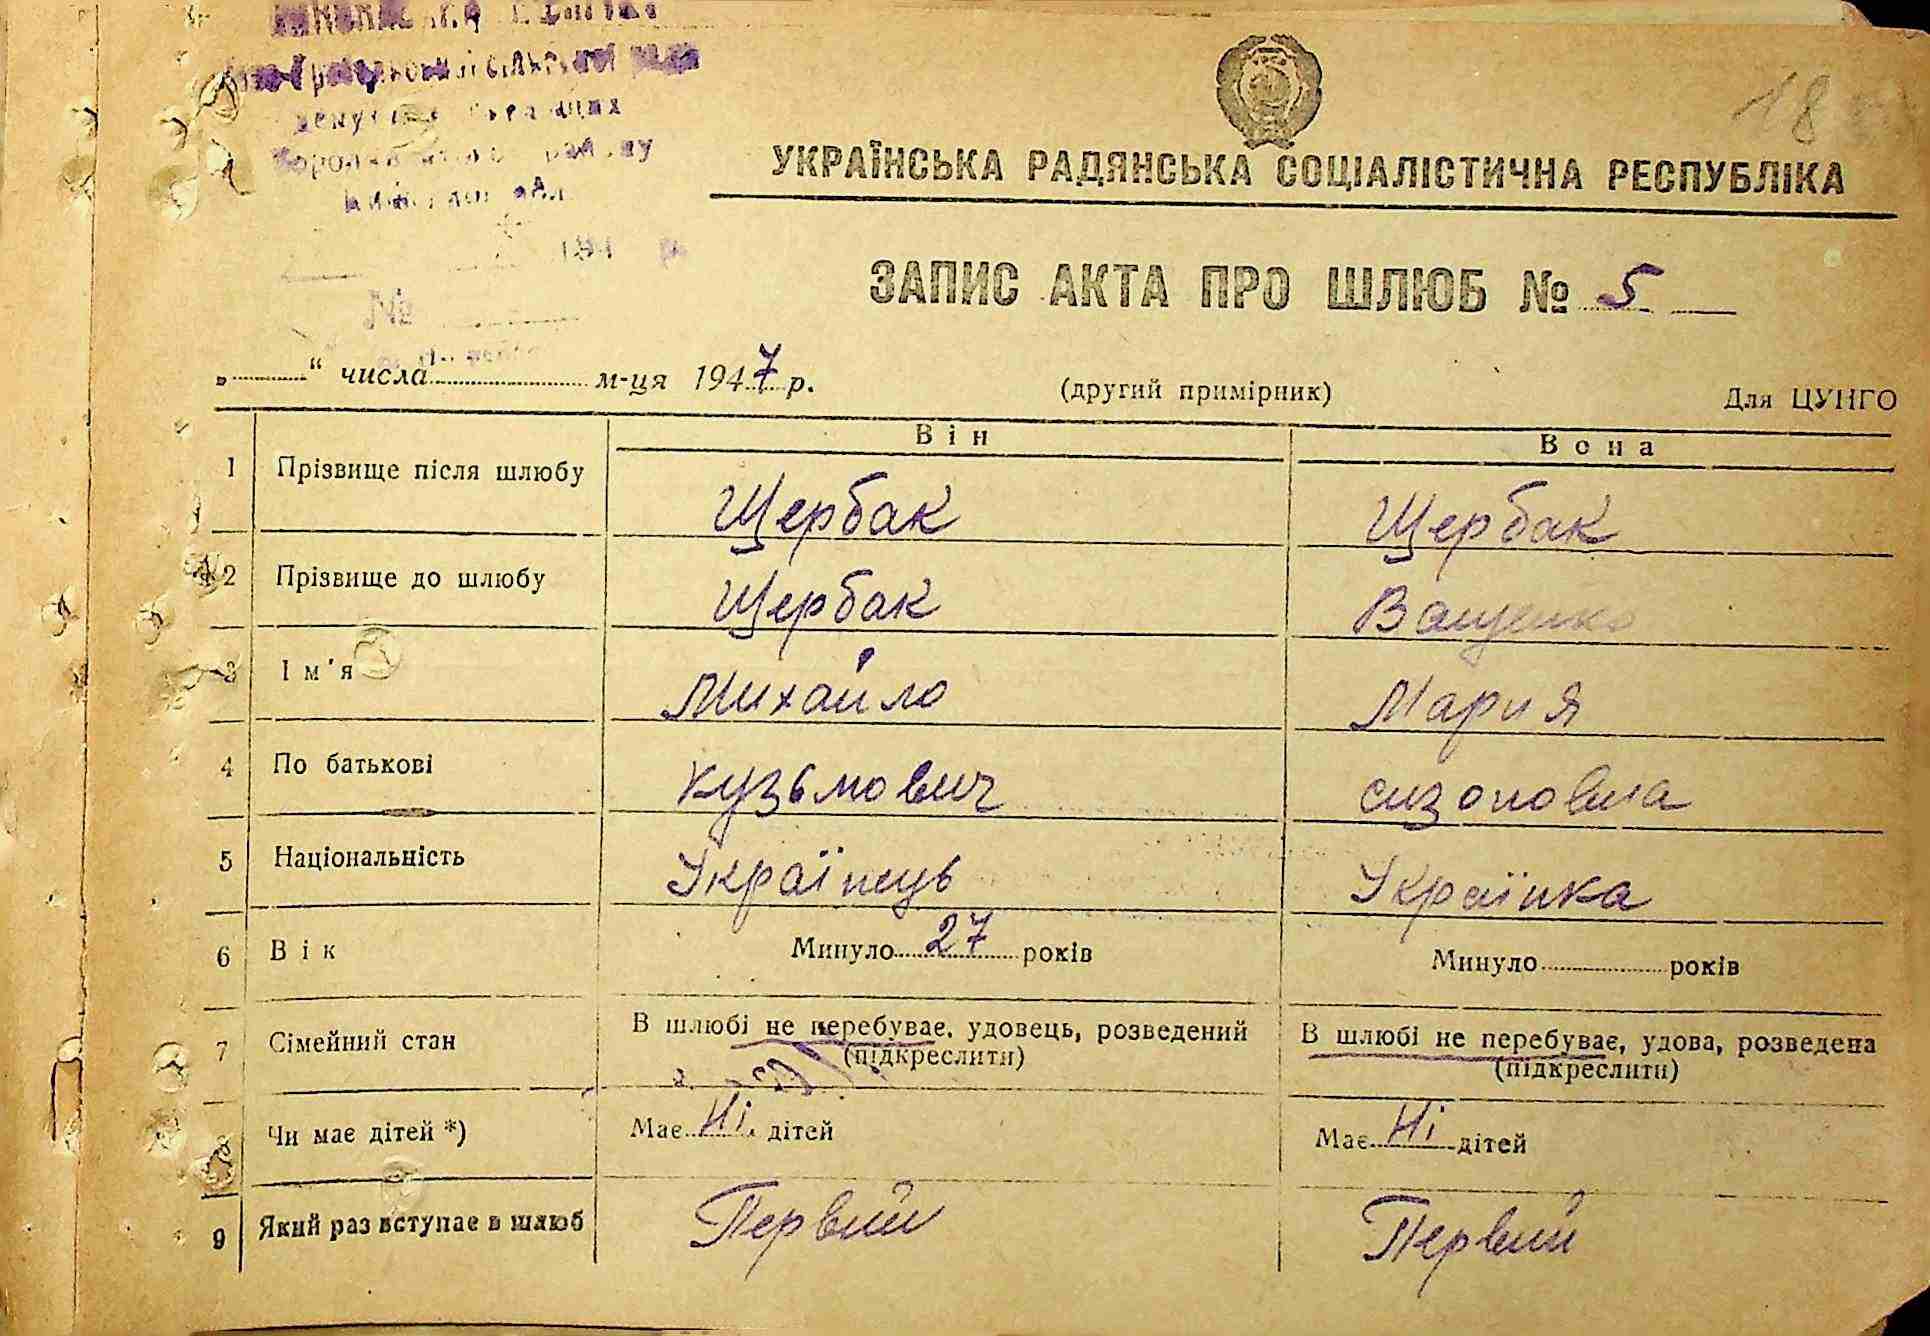 18
УКРАЇНСЬКА РАДЯНСЬКА СОЦІАЛІСТИЧНА РЕСПУБЛІКА
ЗАПИС АКТА ПРО ШЛЮБ № 5
№
„ “ числа м-ця 1947 р. (другий примірник) Для ЦУНГО
Він Вона
1 Прізвище після шлюбу Щербак Щербак
2 Прізвище до шлюбу Щербак Ващенко
3 Ім'я Михайло Мария
4 По батькові кузьмович сизоновна
5 Національність Українець Українка
6 Вік Минуло 27 років Минуло років
7 Сімейний стан В шлюбі не перебуває, удовець, розведений (підкреслити) В шлюбі не перебуває, удова, розведена (підкреслити)
Чи має дітей *) Має Ні дітей Має Ні дітей
9 Який раз вступає в шлюб Первий Первий